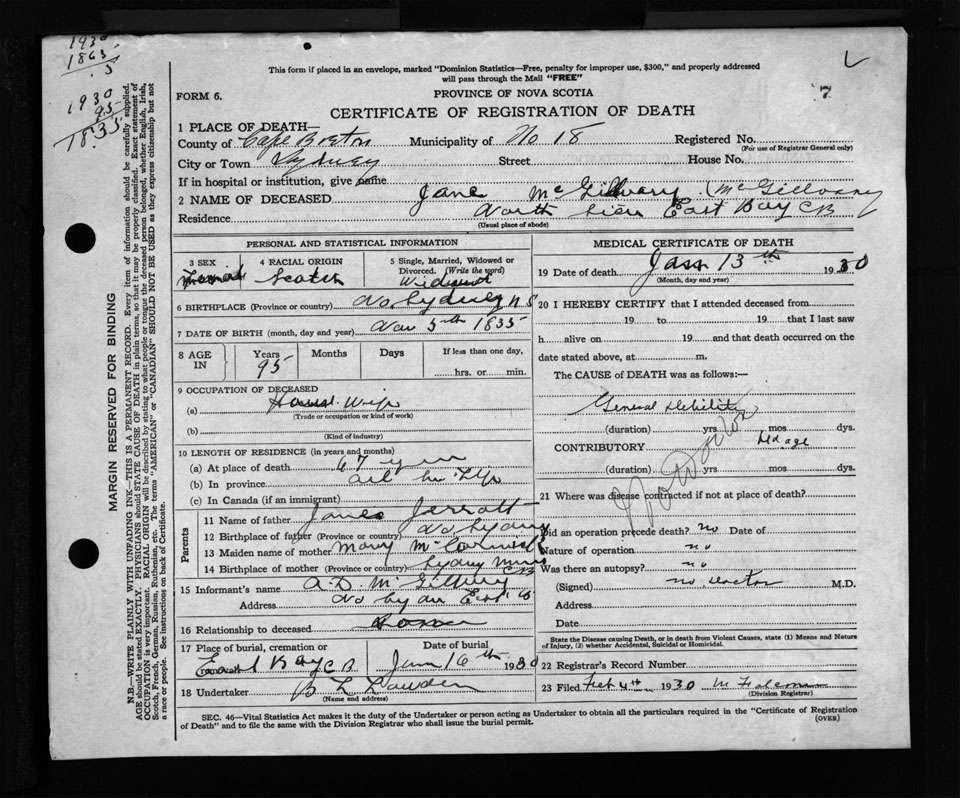 1930
1865
5
1930
95
1835
This form if placed in an envelope, marked "Dominion Statistics—Free, penalty for improper use, $300," and properly addressed
will pass through the Mail "FREE"
FORM 6.
PROVINCE OF NOVA SCOTIA
CERTIFICATE OF REGISTRATION OF DEATH
1 PLACE OF DEATH—
County of Cape Breton Municipality of No 18 Registered No.
(For use of Registrar General only)
City or Town Sydney Street House No.
If in hospital or institution, give name
2 NAME OF DECEASED Jane McGillvary (McGillvary
Residence North East Bay CB
(Usual place of abode)
PERSONAL AND STATISTICAL INFORMATION
3 SEX
4 RACIAL ORIGIN Scotch
5 Single, Married, Widowed or Divorced. (Write the word)
6 BIRTHPLACE (Province or country) No Sydney NS
7 DATE OF BIRTH (month, day and year) Nov 5th 1835
8 AGE IN Years Months Days If less than one day,
95 hrs. or min.
9 OCCUPATION OF DECEASED
(a) House Wife
(Trade or occupation or kind of work)
(b)
(Kind of industry)
10 LENGTH OF RESIDENCE (in years and months)
(a) At place of death 67 years
(b) In province all her Life
(c) In Canada (if an immigrant)
Parents
11 Name of father James Jerrott
12 Birthplace of father (Province or country) No Sydney
13 Maiden name of mother Mary McCormick
14 Birthplace of mother (Province or country) Sydney Mines CB
15 Informant's name A. D. McGillvary
Address
16 Relationship to deceased
17 Place of burial, cremation or removal Date of burial
East Bay CB 16th 1930
18 Undertaker
(Name and address)
MEDICAL CERTIFICATE OF DEATH
19 Date of death Jan 13th 1930
(Month, day and year)
20 I HEREBY CERTIFY that I attended deceased from
19 to 19 that I last saw
h alive on 19 and that death occurred on the
date stated above, at m.
The CAUSE of DEATH was as follows:—
General Debility
(duration) yrs mos dys.
CONTRIBUTORY old age
(duration) yrs mos dys.
21 Where was disease contracted if not at place of death?
Did an operation precede death? no Date of
Nature of operation no
Was there an autopsy? no
(Signed) no Doctor M.D.
Address
Date
State the Disease causing Death, or in death from Violent Causes, state (1) Means and Nature
of Injury, (2) whether Accidental, Suicidal or Homicidal.
22 Registrar's Record Number
23 Filed Feb 4th 1930
(Division Registrar)
SEC. 46—Vital Statistics Act makes it the duty of the Undertaker or person acting as Undertaker to obtain all the particulars required in the "Certificate of Registration
of Death" and to file the same with the Division Registrar who shall issue the burial permit.
(OVER)
MARGIN RESERVED FOR BINDING
N.B.—WRITE PLAINLY WITH UNFADING INK—THIS IS A PERMANENT RECORD. Every item of information should be carefully supplied.
AGE should be stated EXACTLY. PHYSICIANS should STATE CAUSE OF DEATH in plain terms, so that it may be properly classified. Exact statement of
OCCUPATION is very important. RACIAL ORIGIN will be described by stating to what people or tongue the deceased person belonged, whether English, Irish,
Scotch, French, German, Russian, Ruthenian, etc. The terms "AMERICAN" or "CANADIAN" SHOULD NOT BE USED as they express citizenship but not
a race or people. See instructions on back of Certificate.